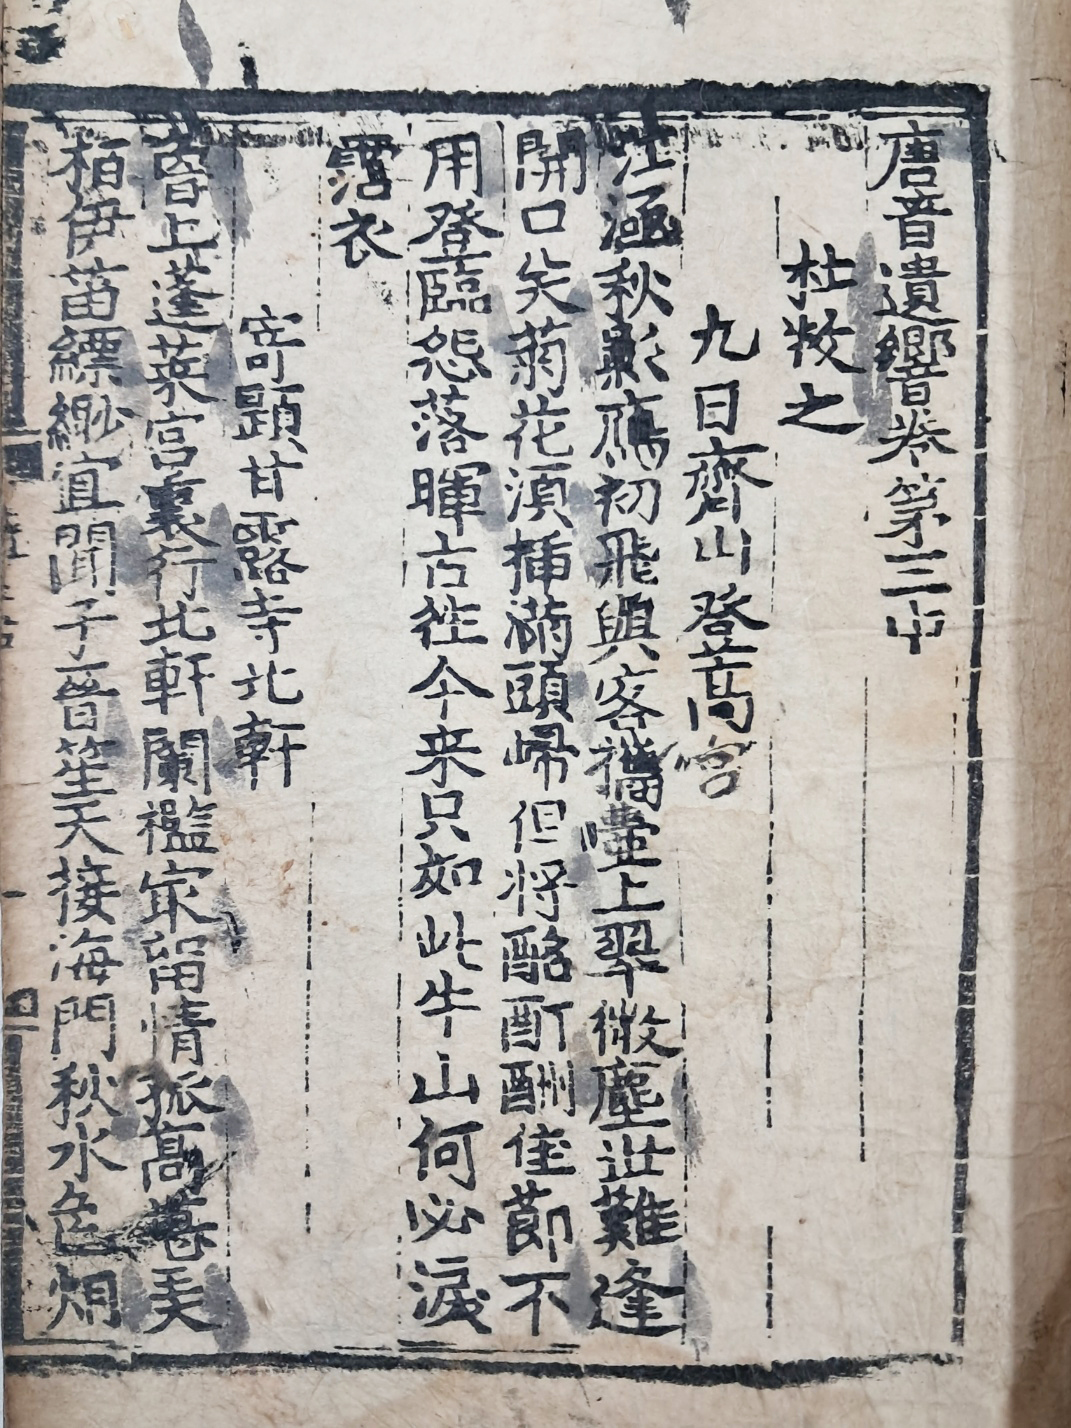 唐音遺響卷第三中
杜牧之
九日齊山登高宮
江涵秋影鴈初飛與客攜壺上翠微塵世難逢
開口笑菊花須揷滿頭歸但將酩酊酬佳節不
用登臨怨落暉古徃今来只如此牛山何必淚
霑衣
寄題甘露寺北軒
曾上蓬萊宮裏行北軒闌檻㝡留情孤高堪弄
栢伊笛縹緲宜聞子晉笙天接海門秋水色烟